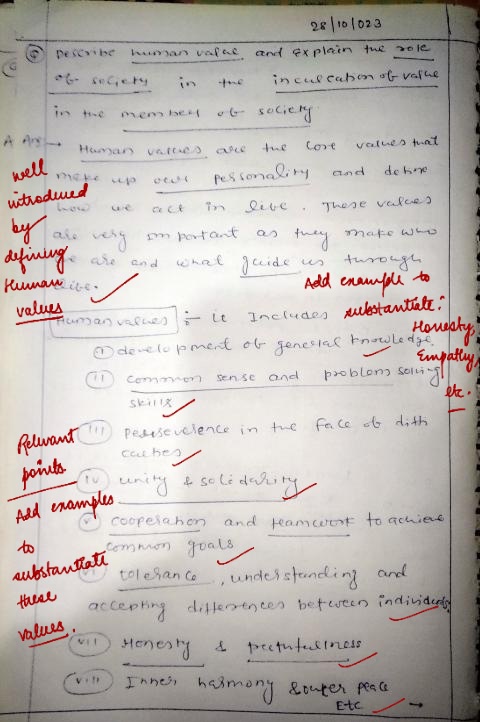 28/10/023
Q Describe human value and explain the role
of society in the inculcation of value
in the members of society.
Ans → Human values are the core values that
make up our personality and define
how we act in live. These values
are very important as they make who
we are and what guide us through
live.
well
introduced
by
defining
Human
values
Add example to
substantiate:
Honesty,
Empathy,
etc.
Human values :- it Includes
(i) development of general knowledge.
(ii) common sense and problem solving
skills
(iii) perseverence in the face of diffi
culties
(iv) unity & solidarity
(v) cooperation and teamwork to achieve
common goals
(vi) tolerance, understanding and
accepting differences between individuals.
(vii) Honesty &
(viii) Inner harmony & outer peace
Etc →
Relevant
points
Add examples
to
substantiate
these
values.